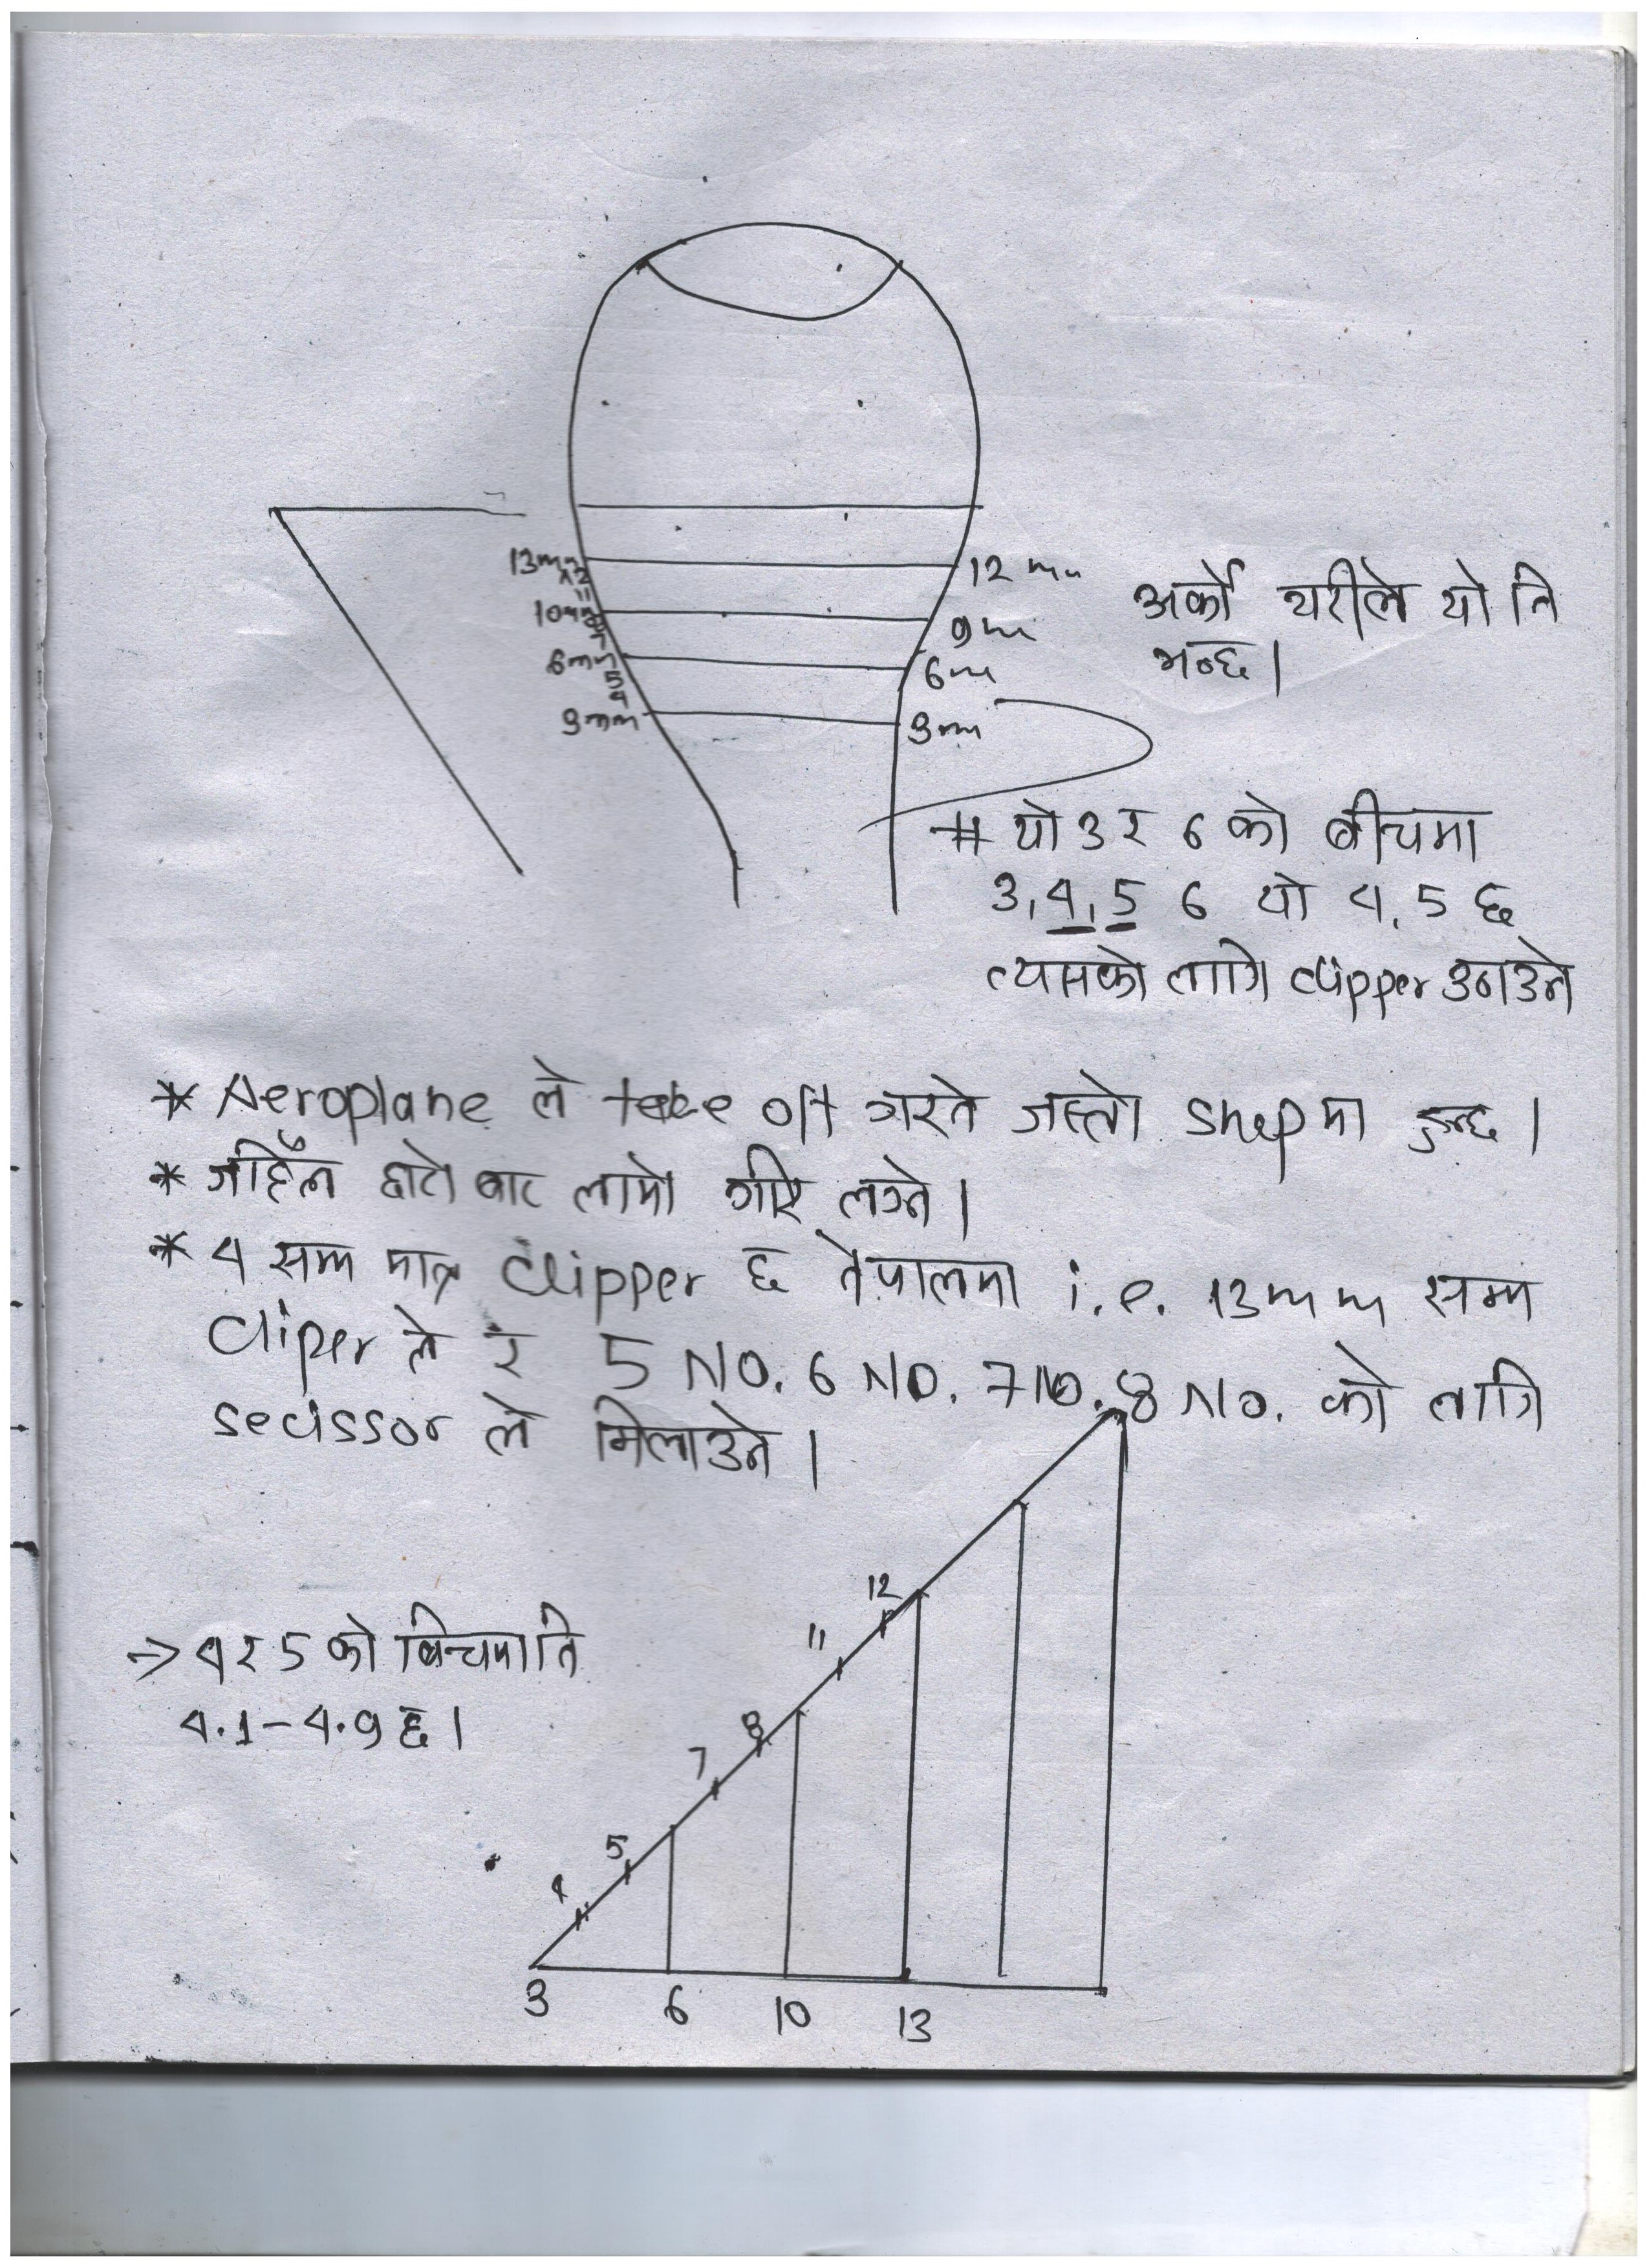 13mm
12
11
10mm
8
7
6mm
5
4
3mm
12 mm
9mm
6mm
3mm
अर्को थरीले यो नि
भन्छ।
# यो 3 र 6 को बीचमा
3,4,5 6 यो 4,5 छ
त्यसको लागि clipper उठाउने
* Aeroplane ले take off गरने जस्तो shepमा हुन्छ।
* जहिले छोटो बाट लामो गरि लग्ने।
* 4 सम्म मात्र clipper छ नेपालमा i.e. 13mm सम्म
cliper ले र 5 NO. 6 NO. 7 NO. 8 No. को लागि
secissor ले मिलाउने।
12
11
→ 4 र 5 को बिचमा नि
4.1-4.9 छ।
8
7
5
4
3 6 10 13